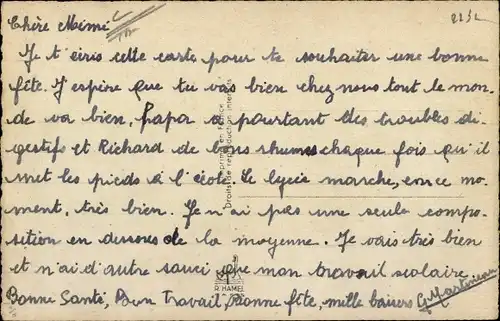 2232
Chère Mémé
Je t'écris cette carte pour te souhaiter une bonne
fête. J'espère que tu vas bien chez nous tout le mon-
de va bien, papa a pourtant des troubles di-
gestifs et Richard de bons rhumes chaque fois qu'il
met les pieds à l'école. Le lycée marche, en ce mo-
ment, très bien. Je n'ai pas une seule compo-
sition en dessous de la moyenne. Je vais très bien
et n'ai d'autre souci que mon travail scolaire
Bonne Santé, Bon Travail, Bonne fête, mille baisers G Martineau
Imprimé en France
Droits de reproduction interdits
R. HAMEL